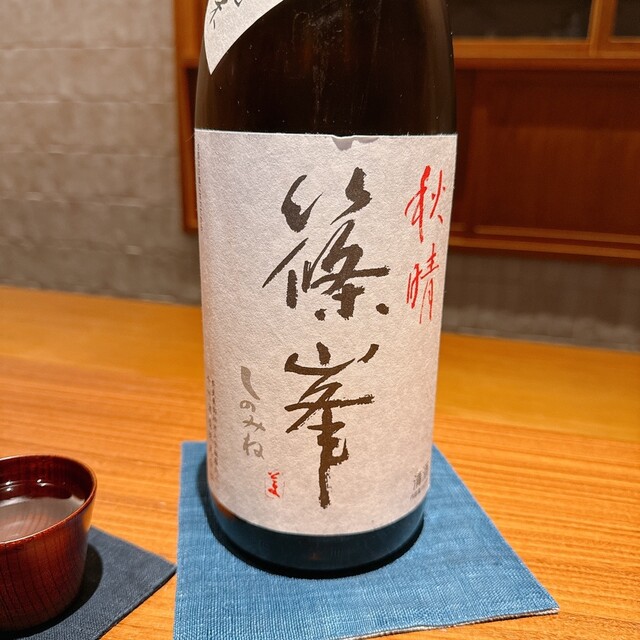 秋晴
篠峯
しのみね
清酒